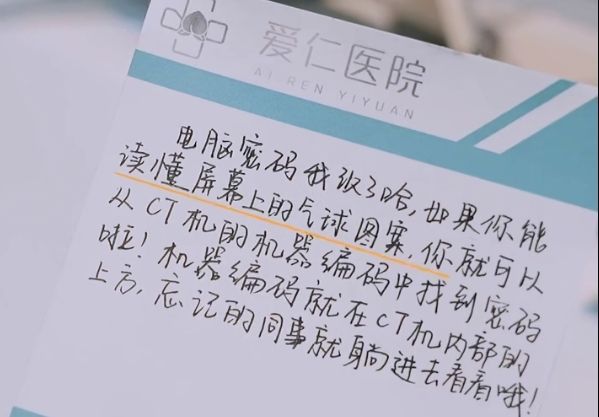 爱仁医院
AI REN YIYUAN
电脑密码我改了哈,如果你能
读懂屏幕上的气球图案,你就可以
从CT机的机器编码中找到密码
啦!机器编码就在CT机内部的
上方,忘记的同事就躺进去看看哦!